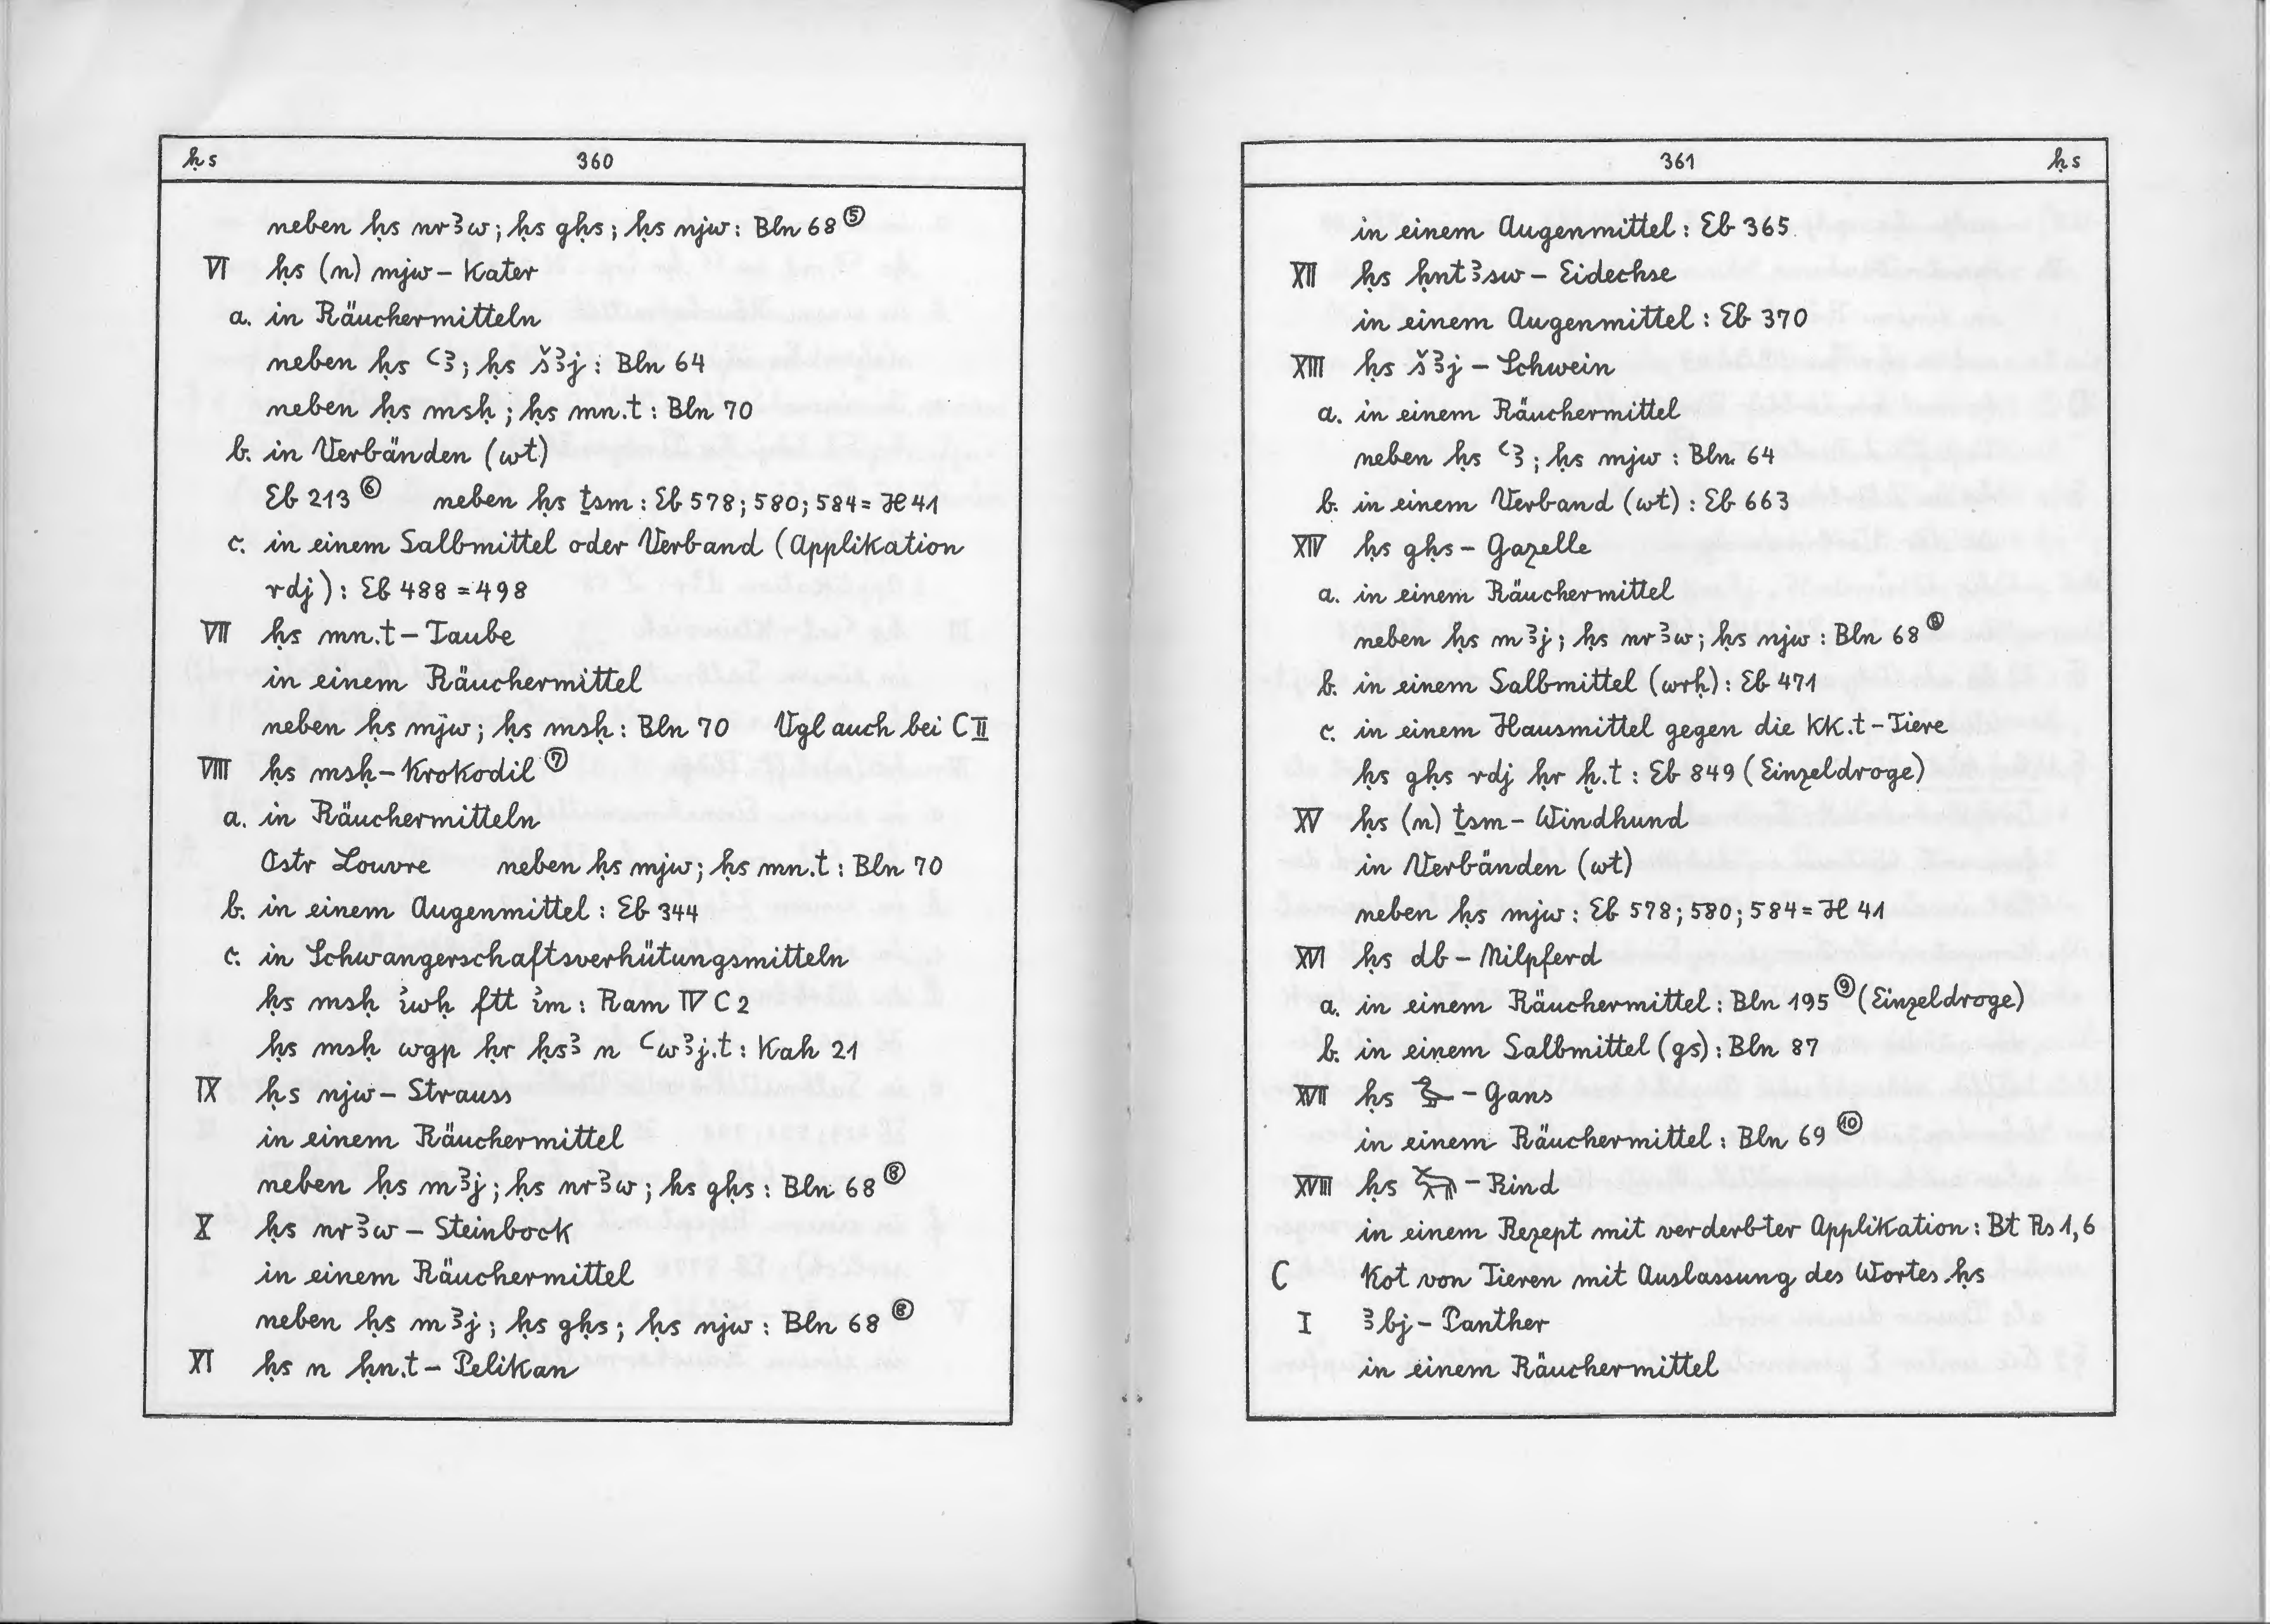 ḥs 360
neben ḥs nrꜣw; ḥs gḥs; ḥs njw: Bln 68 ⑤
VI ḥs (n) mjw – Kater
a. in Räuchermitteln
neben ḥs ꜥꜣ; ḥs šꜣj: Bln 64
neben ḥs msḥ; ḥs mn.t: Bln 70
b. in Verbänden (wt)
Eb 213 ⑥ neben ḥs ṯsm: Eb 578; 580; 584 = H 41
c. in einem Salbmittel oder Verband (Applikation
rdj): Eb 488 = 498
VII ḥs mn.t – Taube
in einem Räuchermittel
neben ḥs mjw; ḥs msḥ: Bln 70 Vgl auch bei C II
VIII ḥs msḥ – Krokodil ⑦
a. in Räuchermitteln
Ostr Louvre neben ḥs mjw; ḥs mn.t: Bln 70
b. in einem Augenmittel: Eb 344
c. in Schwangerschaftsverhütungsmitteln
ḥs msḥ ỉwḥ ftt ỉm: Ram IV C 2
ḥs msḥ wgp ḥr ḥsꜣ n ꜥwꜣj.t: Kah 21
IX ḥs njw – Strauss
in einem Räuchermittel
neben ḥs mꜣj; ḥs nrꜣw; ḥs gḥs: Bln 68 ⑧
X ḥs nrꜣw – Steinbock
in einem Räuchermittel
neben ḥs mꜣj; ḥs gḥs; ḥs njw: Bln 68 ⑧
XI ḥs n ḥn.t – Pelikan
361 ḥs
in einem Augenmittel: Eb 365
XII ḥs ḥntꜣsw – Eidechse
in einem Augenmittel: Eb 370
XIII ḥs šꜣj – Schwein
a. in einem Räuchermittel
neben ḥs ꜥꜣ; ḥs mjw: Bln 64
b. in einem Verband (wt): Eb 663
XIV ḥs gḥs – Gazelle
a. in einem Räuchermittel
neben ḥs mꜣj; ḥs nrꜣw; ḥs njw: Bln 68 ⑧
b. in einem Salbmittel (wrḥ): Eb 471
c. in einem Hausmittel gegen die kk.t-Tiere
ḥs gḥs rdj ḥr ḫ.t: Eb 849 (Einzeldroge)
XV ḥs (n) ṯsm – Windhund
in Verbänden (wt)
neben ḥs mjw: Eb 578; 580; 584 = H 41
XVI ḥs db – Nilpferd
a. in einem Räuchermittel: Bln 195 ⑨ (Einzeldroge)
b. in einem Salbmittel (gs): Bln 87
XVII ḥs 𓅭 – Gans
in einem Räuchermittel: Bln 69 ⑩
XVIII ḥs 𓃒 – Rind
in einem Rezept mit verderbter Applikation: Bt Rs 1,6
C Kot von Tieren mit Auslassung des Wortes ḥs
I ꜣbj – Panther
in einem Räuchermittel